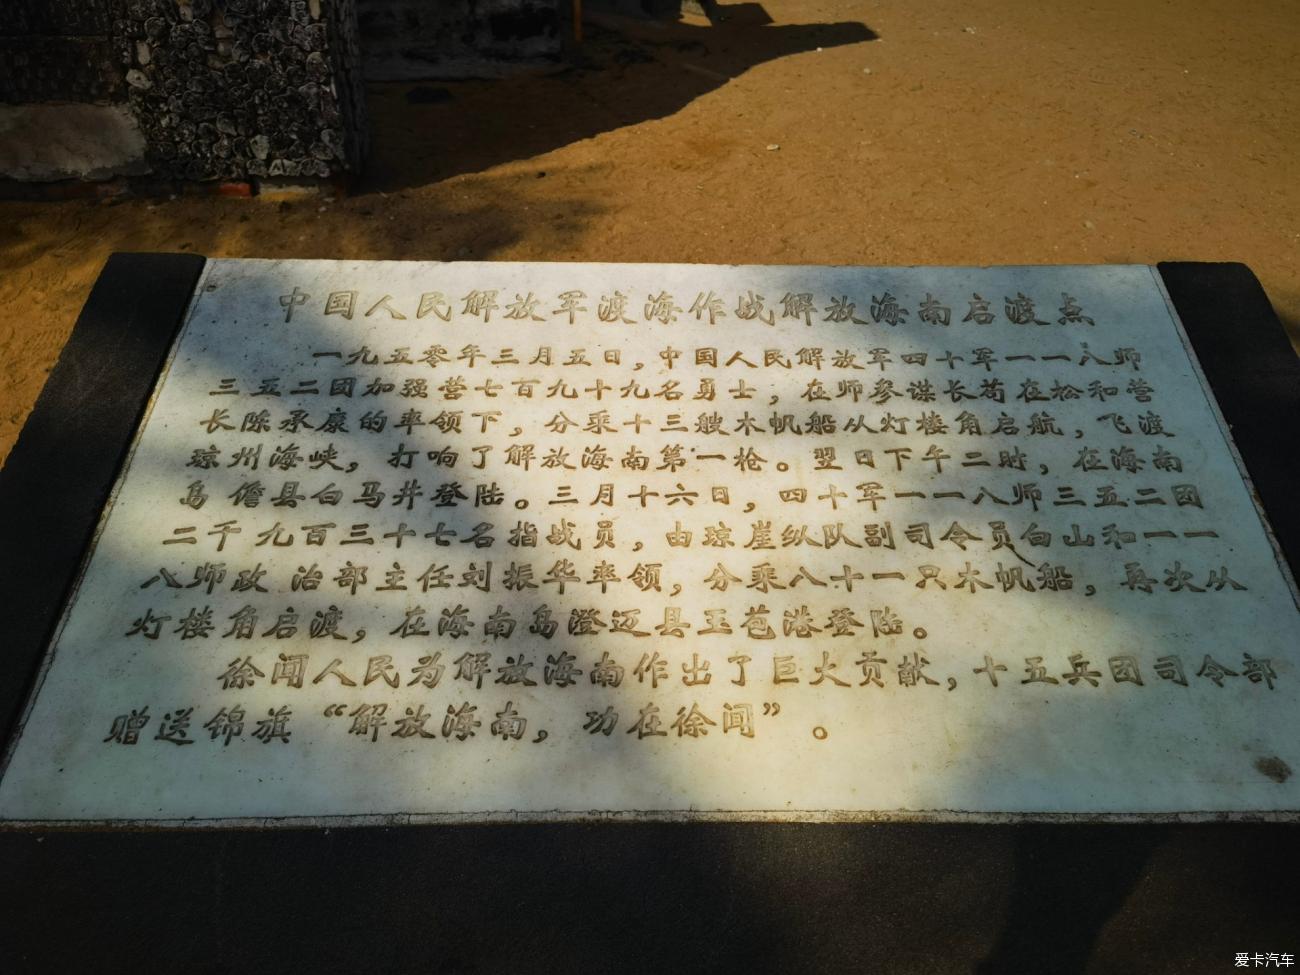 中国人民解放军渡海作战解放海南启渡点
一九五零年三月五日，中国人民解放军四十军一一八师
三五二团加强营七百九十九名勇士，在师参谋长苟在松和营
长陈承康的率领下，分乘十三艘木帆船从灯楼角启航，飞渡
琼州海峡，打响了解放海南第一枪。翌日下午二时，在海南
岛儋县白马井登陆。三月十六日，四十军一一八师三五二团
二千九百三十七名指战员，由琼崖纵队副司令员白山和一一
八师政治部主任刘振华率领，分乘八十一只木帆船，再次从
灯楼角启渡，在海南岛澄迈县玉苞港登陆。
徐闻人民为解放海南作出了巨大贡献，十五兵团司令部
赠送锦旗“解放海南，功在徐闻”。
爱卡汽车